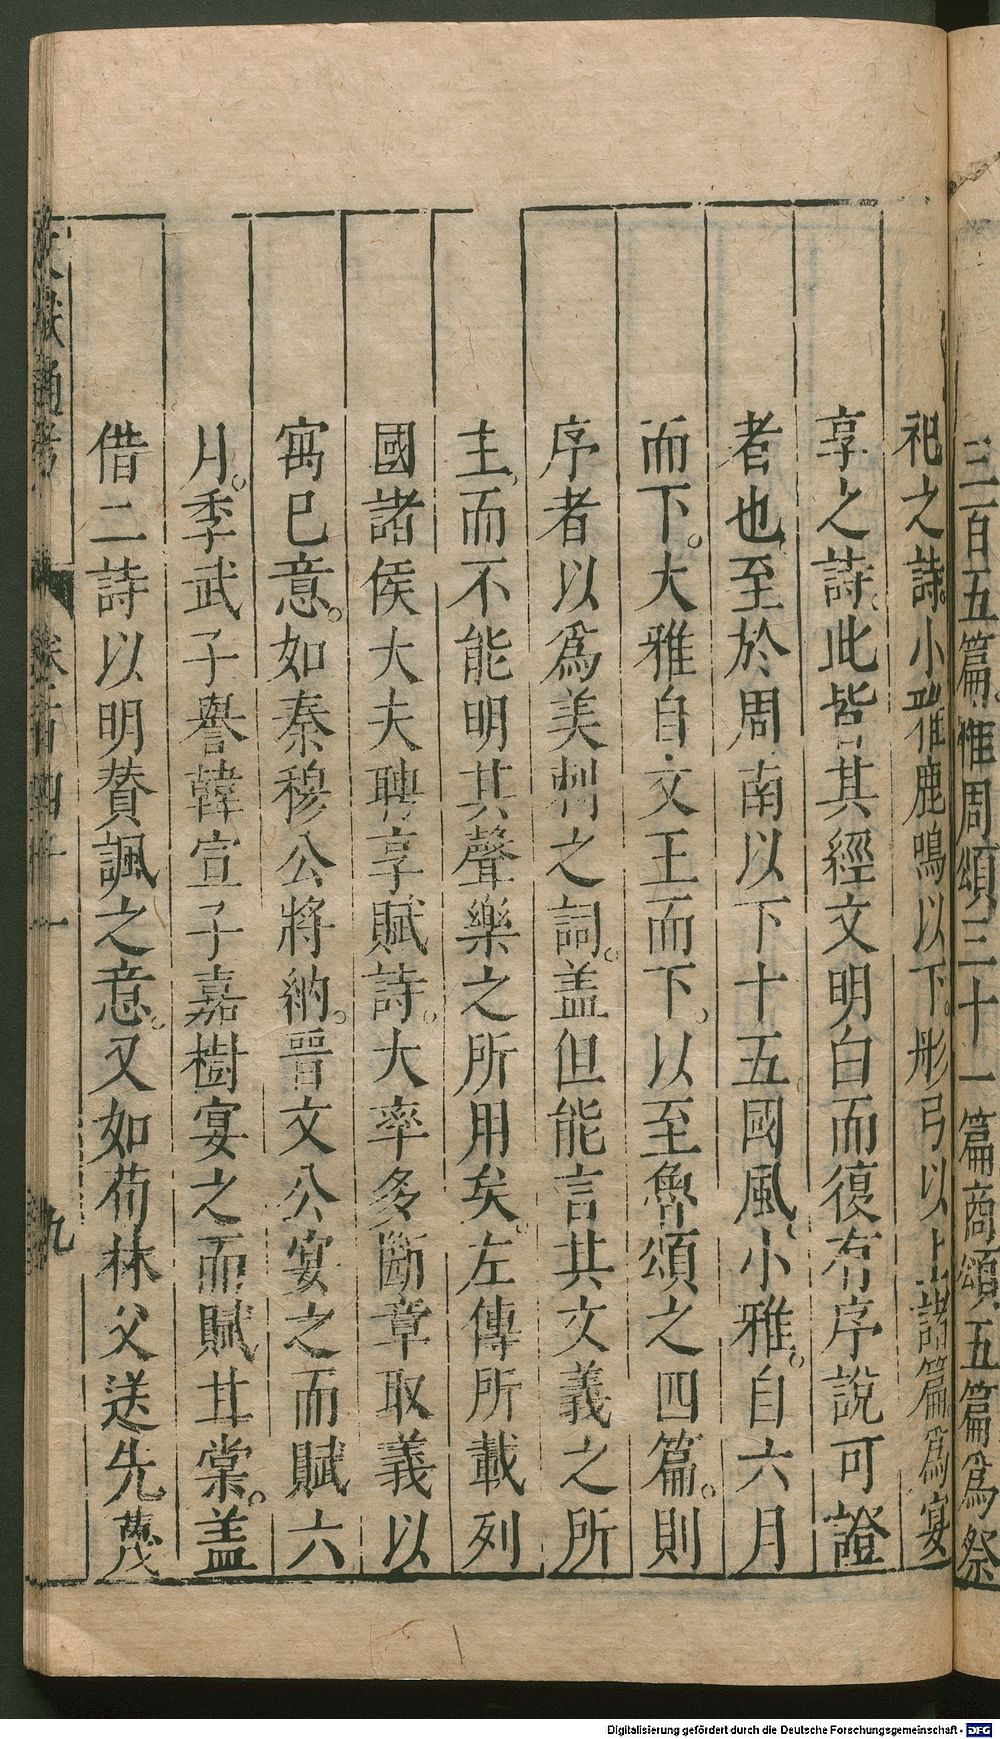 三百五篇惟周頌三十一篇商頌五篇爲祭
祀之詩小雅鹿鳴以下彤弓以上諸篇爲宴
享之詩此皆其經文明白而復有序說可證
者也至於周南以下十五國風小雅自六月
而下大雅自文王而下以至魯頌之四篇則
序者以爲美刺之詞盖但能言其文義之所
主而不能明其聲樂之所用矣左傳所載列
國諸侯大夫聘享賦詩大率多斷章取義以
寓已意如秦穆公將納晉文公宴之而賦六
月季武子譽韓宣子嘉樹宴之而賦甘棠盖
借二詩以明賛諷之意又如荀林父送先蔑
文獻通考 卷百四十一 九
Digitalisierung gefördert durch die Deutsche Forschungsgemeinschaft - DFG